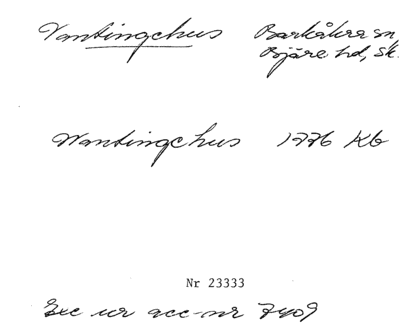 Vantingehus Barkåkra sn,
Bjäre hd, Sk.
Wantingehus 1776 Kb
Nr 23333
Exc ur acc-nr 7409